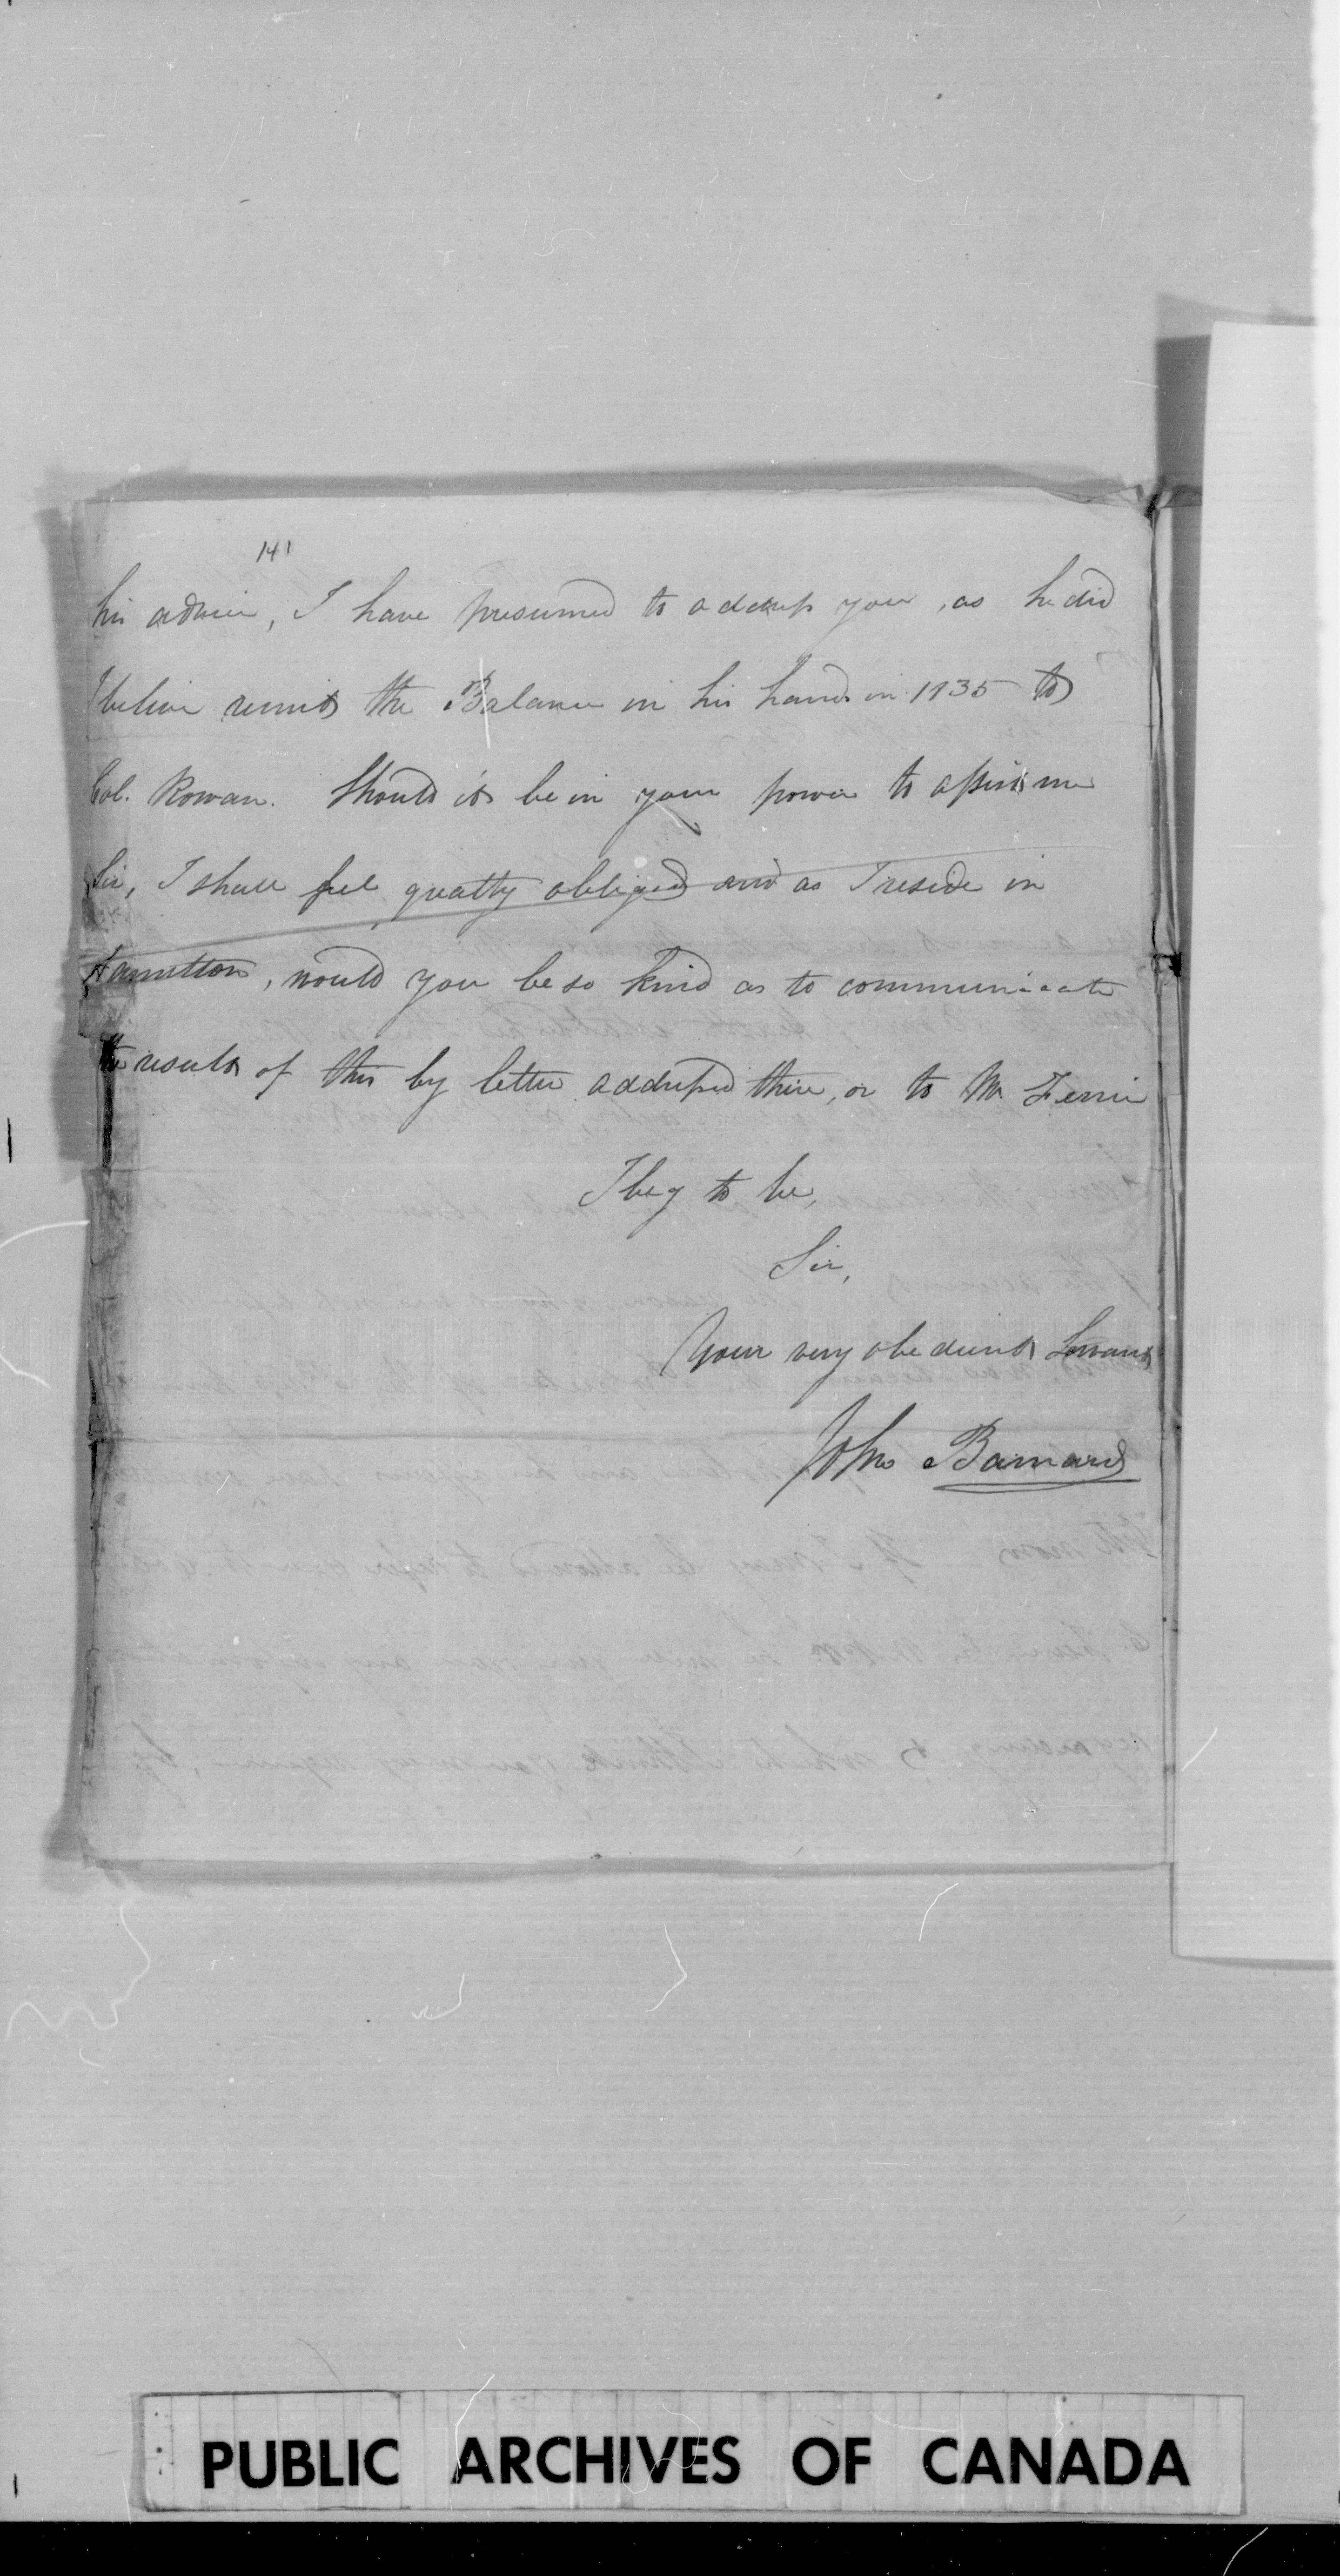 141
his advice, I have presumed to address you, as he did
I believe remit the Balance in his hands in 1835 to
Col. Rowan. Should it be in your power to assist me
Sir, I shall feel greatly obliged and as I reside in
Hamilton, would you be so kind as to communicate
the result of this by letter addressed there, or to Mr Ferrie
I beg to be,
Sir,
Your very obedient Servant
John Barnard
PUBLIC ARCHIVES OF CANADA